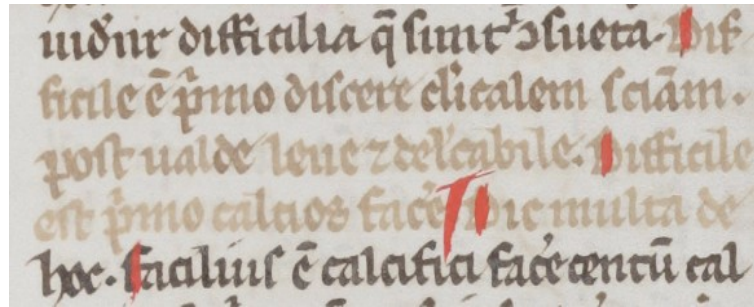 uidẽnr difficilia q̃ sunt ɔ̾sueta. Dif
ficile ẽ p̃mo discere cl̾icalem sciãm.
post ualde leue ⁊ del̾cabile. Difficile
est p̃mo calcios fac̾e Dic multa de
hoc. Facilius ẽ calcifici fac̾e centũ cal